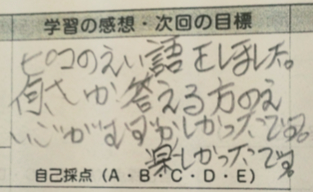 学習の感想・次回の目標
のえい語をしました。
何さいか答える方のえ
いごがむずかしかったです。
楽しかったです。
自己採点（A・B・C・D・E）